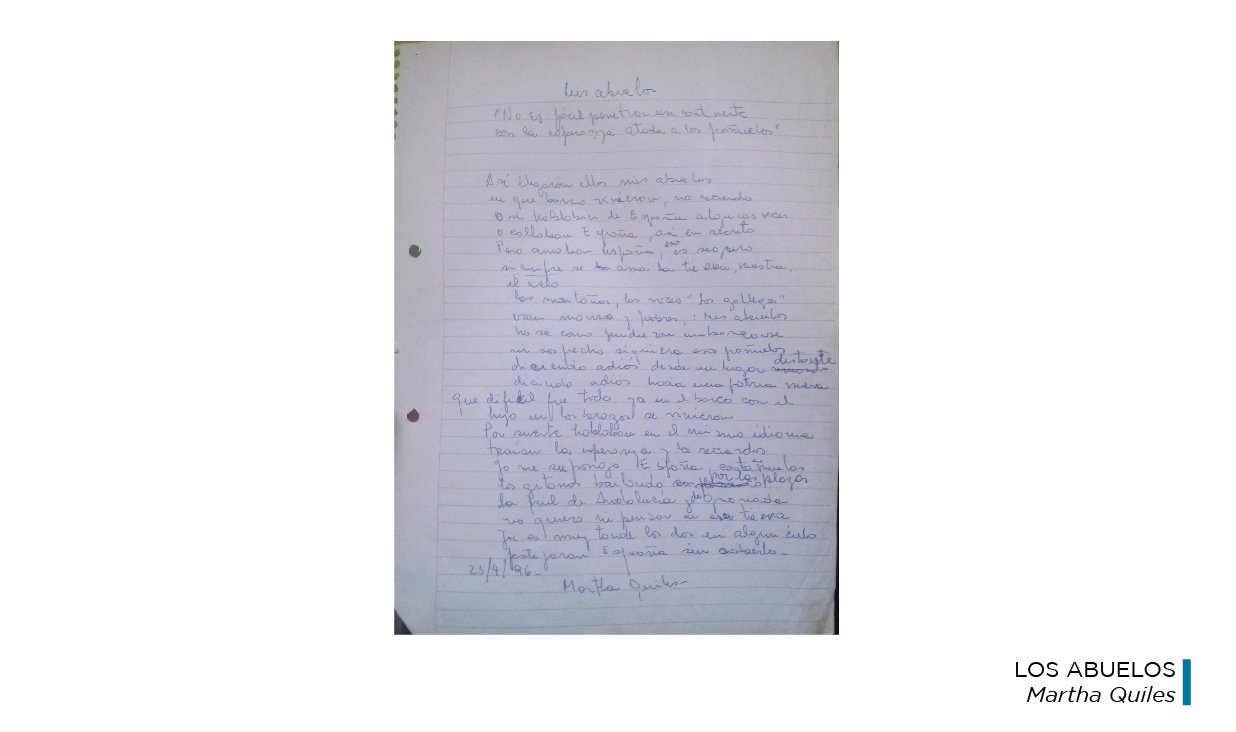 Mis abuelos
"No es fácil penetrar un continente
con la esperanza atada a los pañuelos"
Así llegaron ellos mis abuelos
en que barco vinieron, no recuerdo
O si hablaban de España algunas veces
o callaban España, así en secreto
Pero amaban España, eso es seguro
siempre se ama la tierra nuestra.
el cielo
las montañas, los "Los gallegos"
eran mansos y pobres, mis abuelos
No se como pudieron embarcarse
ni sospecho siquiera esos pañuelos
diciendo adiós desde un lugar distante
diciendo adios hacia una patria nueva
que difícil fue todo ya en el barco con el
hijo en los brazos se vinieron
Por suerte hablaban en el mismo idioma
traían la esperanza y los recuerdos
Yo me supongo España, castañuelas
los gitanos bailando por las plazas
la piel de Andalucía y de Granada
no quiero ni pensar en esa tierra
Ya es muy tarde los dos en algun cielo
festejaran España sin saberlo
23/4/96-
Martha Quiles
LOS ABUELOS
Martha Quiles